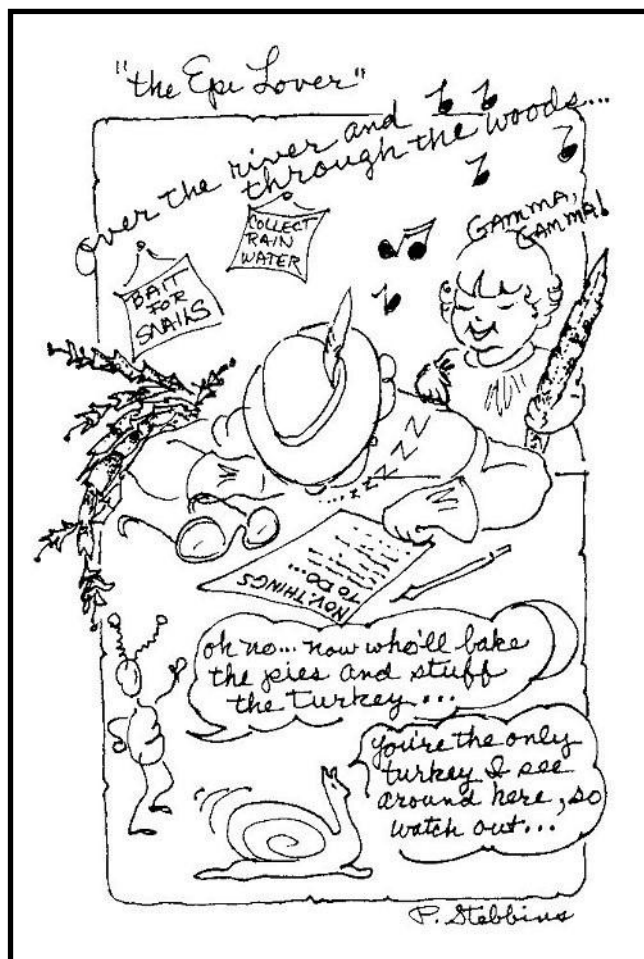 "the Epi Lover"
Over the river and
through the woods...
COLLECT
RAIN
WATER
BAIT
FOR
SNAILS
GAMMA,
GAMMA!
...zzZZZZ
NOV. THINGS
TO DO...
oh no... now who'll bake
the pies and stuff
the turkey...
you're the only
turkey I see
around here, so
watch out...
P. Stebbins